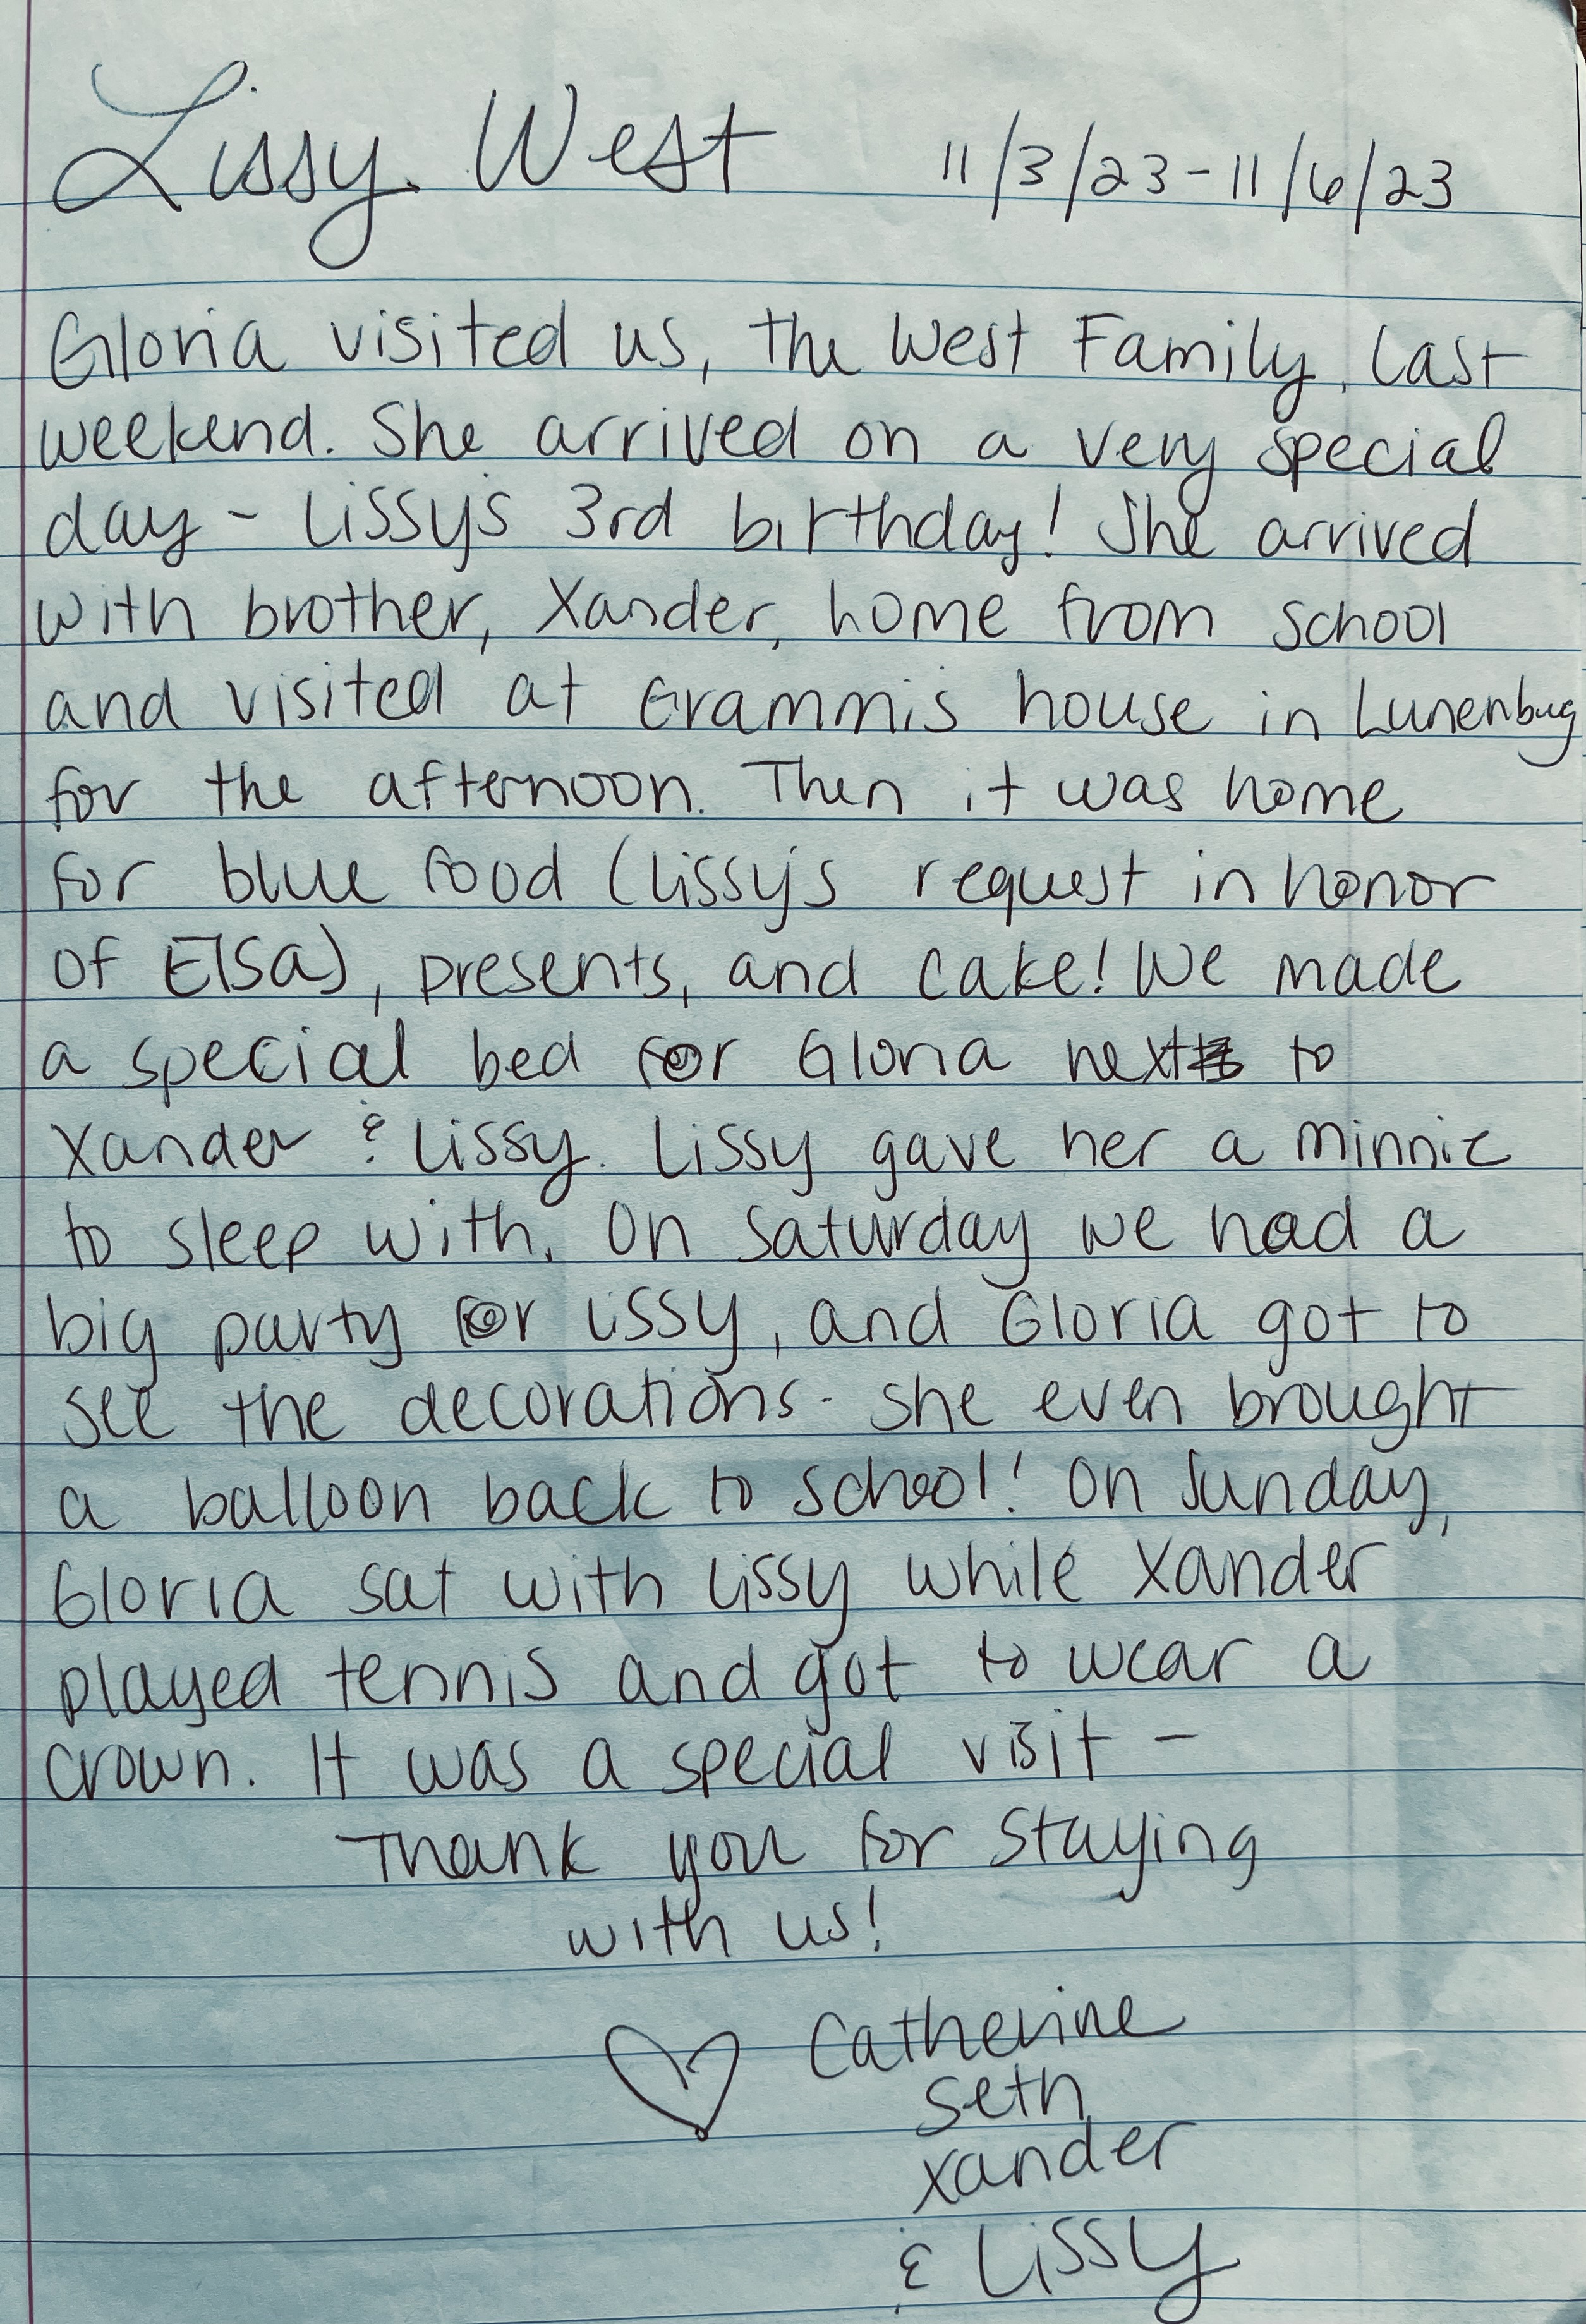 Lissy West 11/3/23-11/6/23
Gloria visited us, the West Family, last
weekend. She arrived on a very special
day - Lissy's 3rd birthday! She arrived
with brother, Xander, home from school
and visited at Grammi's house in Lunenbug
for the afternoon. Then it was home
for blue food (Lissy's request in honor
of Elsa), presents, and cake! We made
a special bed for Gloria next to
Xander & Lissy. Lissy gave her a Minnie
to sleep with. On Saturday we had a
big party for Lissy, and Gloria got to
see the decorations. She even brought
a balloon back to school! On Sunday,
Gloria sat with Lissy while Xander
played tennis and got to wear a
crown. It was a special visit -
Thank you for staying
with us!
♡ Catherine
Seth
Xander
& Lissy